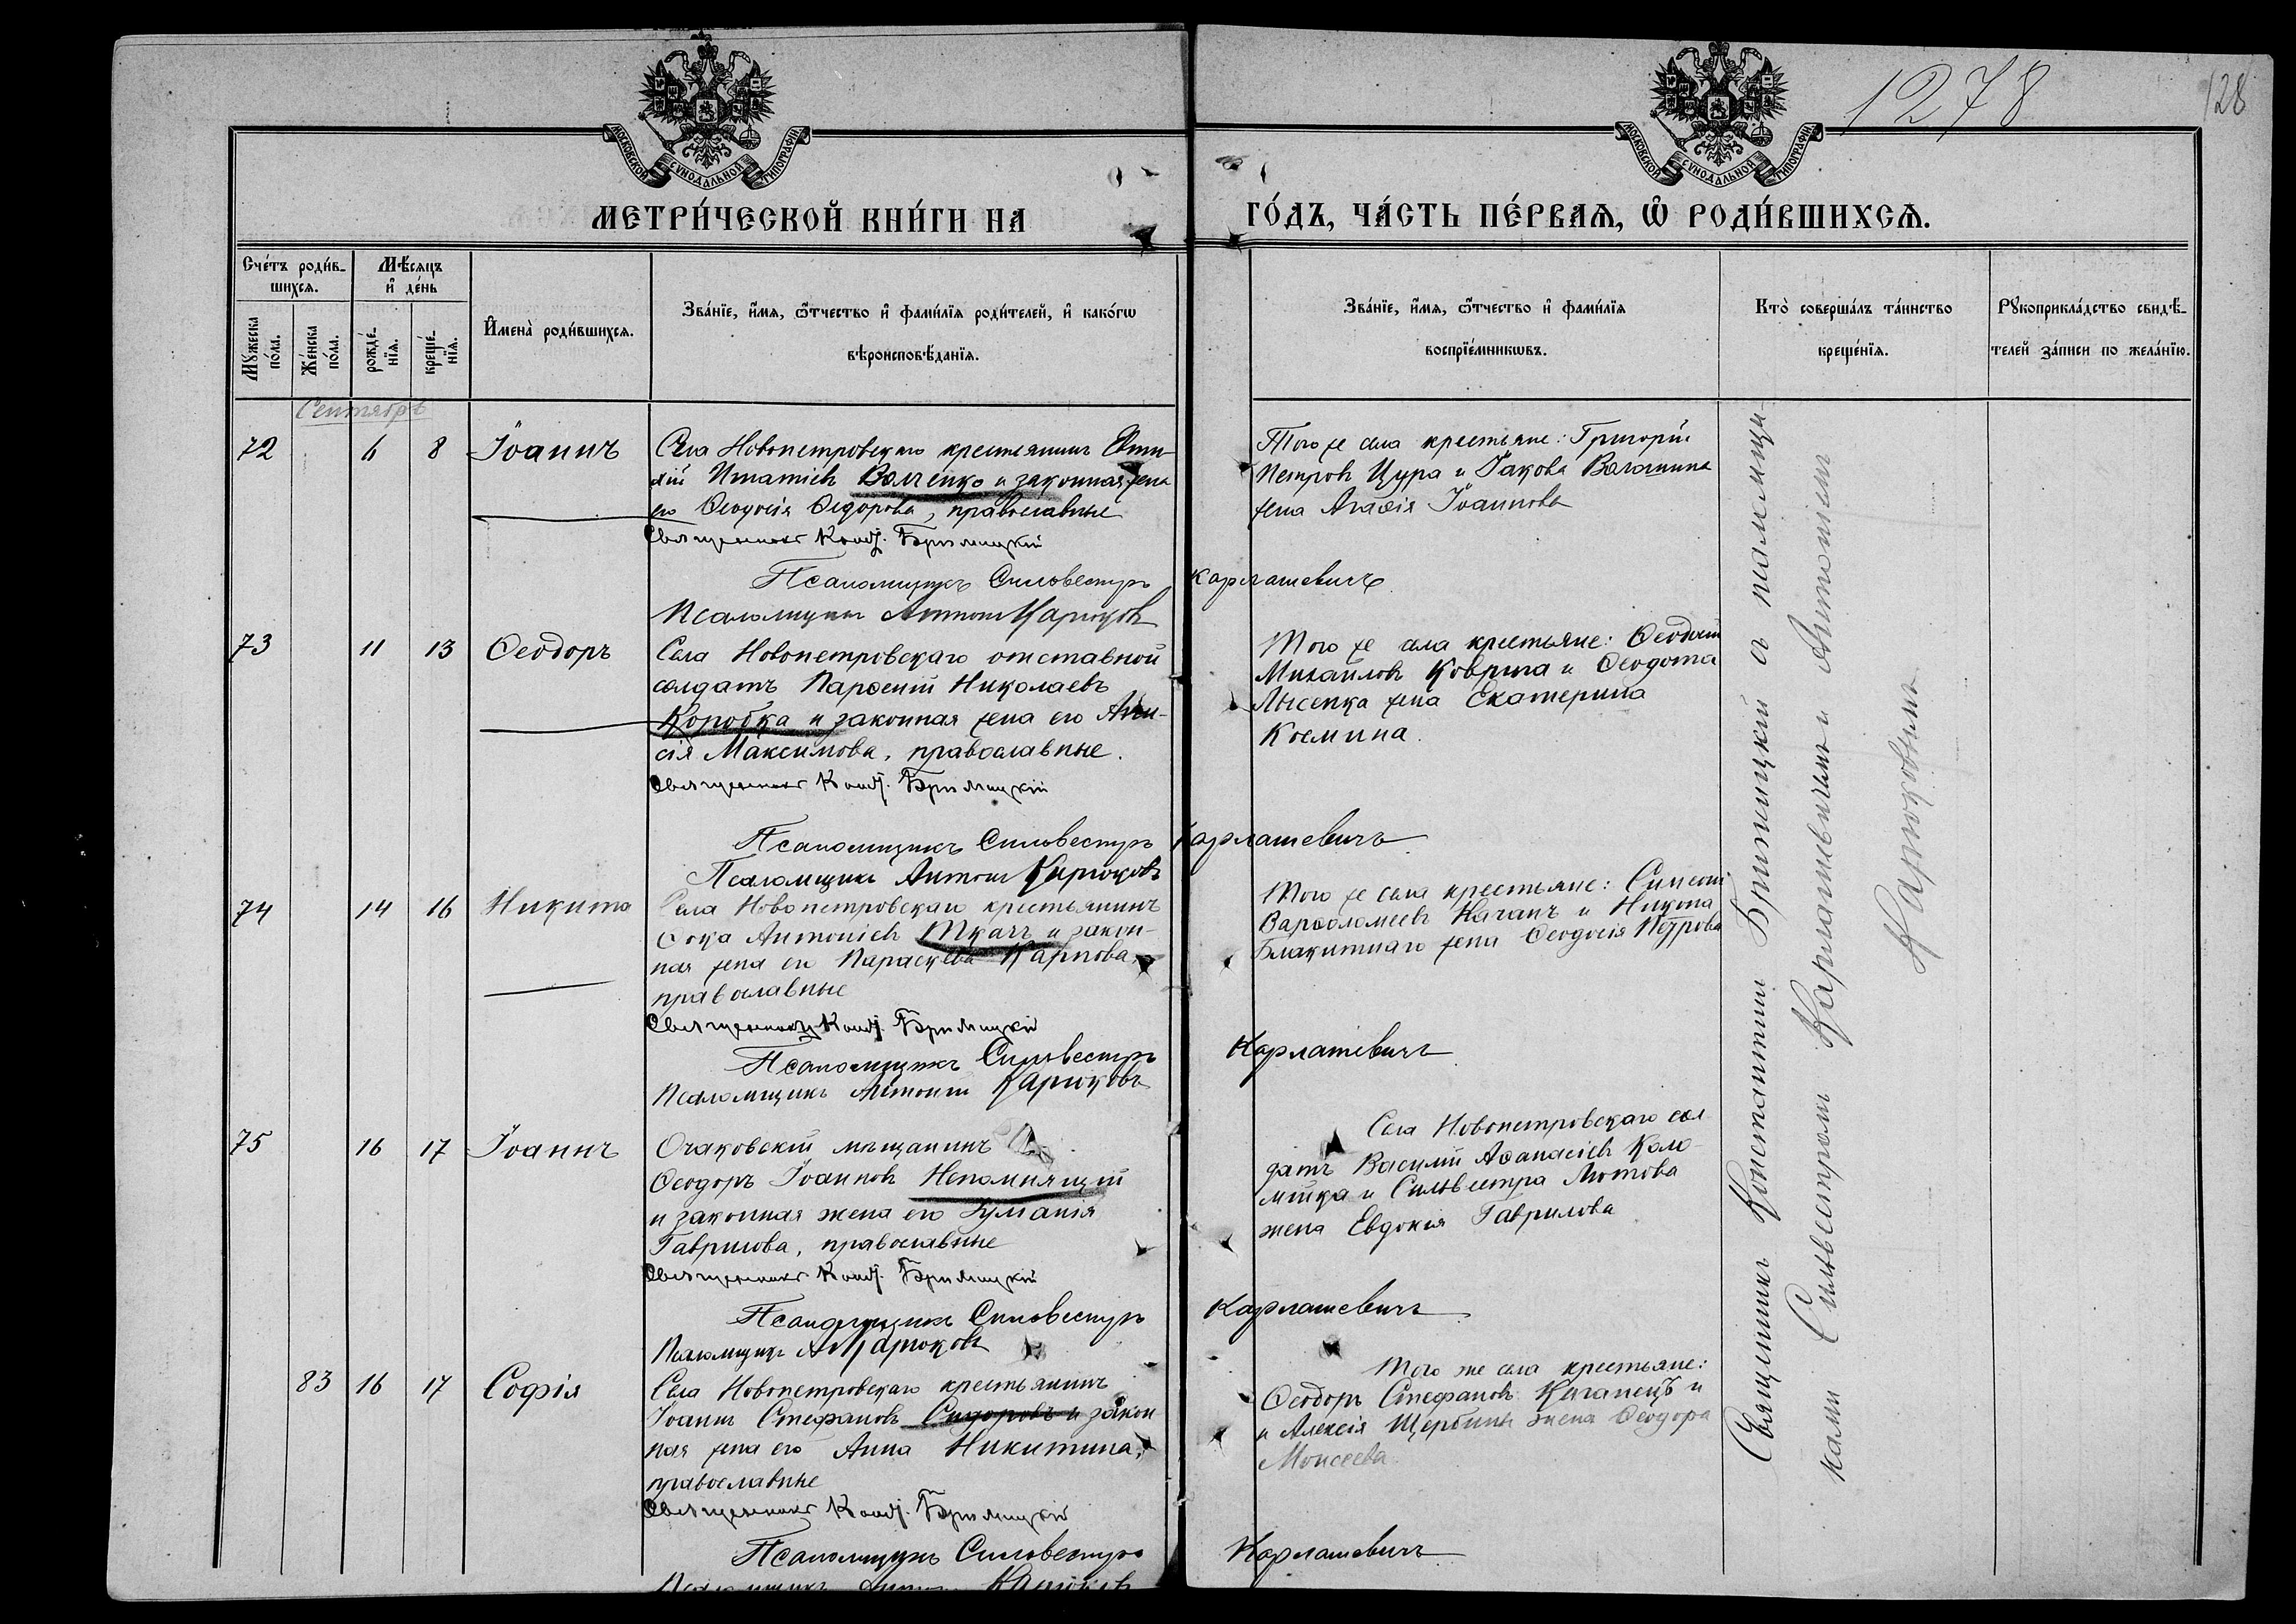 1278
128
МОСКОВСКОЙ СУНОДАЛЬНОЙ ТИПОГРАФІИ
МОСКОВСКОЙ СУНОДАЛЬНОЙ ТИПОГРАФІИ
МЕТРИ́ЧЕСКОЙ КНИ́ГИ НА
ГО́ДЪ, ЧА́СТЬ ПЕ́РВАѦ, Ѽ РОДИ́ВШИХСѦ.
Сче́тъ роди́в-
шихсѧ.
Мꙋжеска по́ла.
Же́нска по́ла.
Мѣ́сяцъ
и҆ де́нь
рожде́-
нїѧ.
креще́-
нїѧ.
И҆мена̀ роди́вшихсѧ.
Зва́нїе, и҆́мѧ, ѻ҆́тчество и҆ фами́лїѧ роди́телей, и҆ како́гѡ
вѣроисповѣ́данїѧ.
Зва́нїе, и҆́мѧ, ѻ҆́тчество и҆ фами́лїѧ
воспрїе́мникѡвъ.
Кто̀ соверша́лъ та́инство
креще́нїѧ.
Рꙋкоприкла́дство свидѣ́-
телей за́писи по жела́нїю.
Сентябрь
72 6 8 Іоаннъ
Села Новопетровскаго крестьянинъ Евти-
хій Игнатіевъ Волченко и законная жена
его Ѳеодосія Ѳедорова, православные
Священникъ Конст. Бржитицкій
Псаломщикъ Сильвестръ Карлашевичъ
Псаломщикъ Антоній Карюковъ
Того же села крестьяне: Григорій
Петровъ Цура и Іакова
жена Агафія Іоаннова
73 11 13 Ѳеодоръ
Села Новопетровскаго отставной
солдатъ Парѳеній Николаевъ
Коробка и законная жена его Ани-
сія Максимова, православные.
Священникъ Конст. Бржитицкій
Псаломщикъ Сильвестръ Карлашевичъ
Псаломщикъ Антоній Карюковъ
Того же села крестьяне:
Михайловъ Коврига и Ѳеодота
Лысенка жена Екатерина
Космина.
74 14 16 Никита
Села Новопетровскаго крестьянинъ
Ѳока Антоніевъ Ткачъ и закон-
ная жена его Параскева Карпова,
православные
Священникъ Конст. Бржитицкій
Псаломщикъ Сильвестръ Карлашевичъ
Псаломщикъ Антоній Карюковъ
Того же села крестьяне: Симеонъ
Варѳоломеевъ и Никона
Блакитнаго жена Ѳеодосія Петрова
75 16 17 Іоаннъ
Очаковскій мѣщанинъ
Ѳеодоръ Іоанновъ Непомнящій
и законная жена его
Гаврилова, православные
Священникъ Конст. Бржитицкій
Псаломщикъ Сильвестръ Карлашевичъ
Псаломщикъ Ант. Карюковъ
Села Новопетровскаго сол-
датъ Василій Аѳанасіевъ Коло-
мійца и Сильвестра Лютова
жена Евдокія Гаврилова
83 16 17 Софія
Села Новопетровскаго крестьянинъ
Іоаннъ Стефановъ Сидоровъ и закон
ная жена его Анна Никитина,
православные
Священникъ Конст. Бржитицкій
Псаломщикъ Сильвестръ Карлашевичъ
Псаломщикъ Антоній Карюковъ
Того же села крестьяне:
Ѳеодоръ Стефановъ и
и Алексія Щербины жена Ѳеодора
Моисеева
Священникъ Константинъ Бржитицкій съ псаломщи-
ками Сильвестромъ Карлашевичемъ и Антоніемъ
Карюковымъ